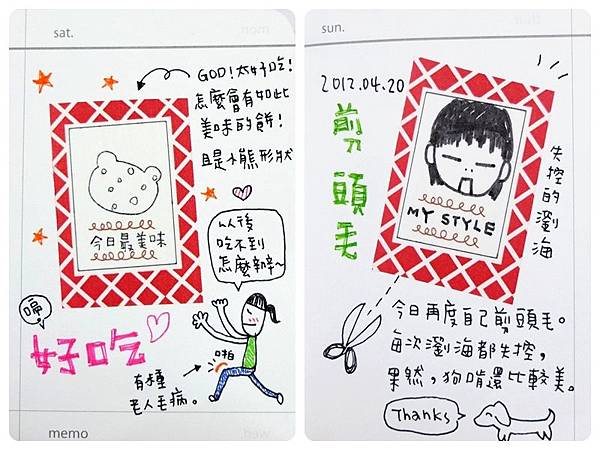 sat.
GOD!太好吃!
怎麼會有如此
美味的餅!
且是小熊形狀
今日最美味
以後
吃不到
怎麼辦~
嗝
好吃
啪
有種
老人毛病。
memo
sun.
2012.04.20
剪頭毛
MY STYLE
失控的瀏海
今日再度自己剪頭毛。
每次瀏海都失控,
果然,狗啃還比較美。
Thanks